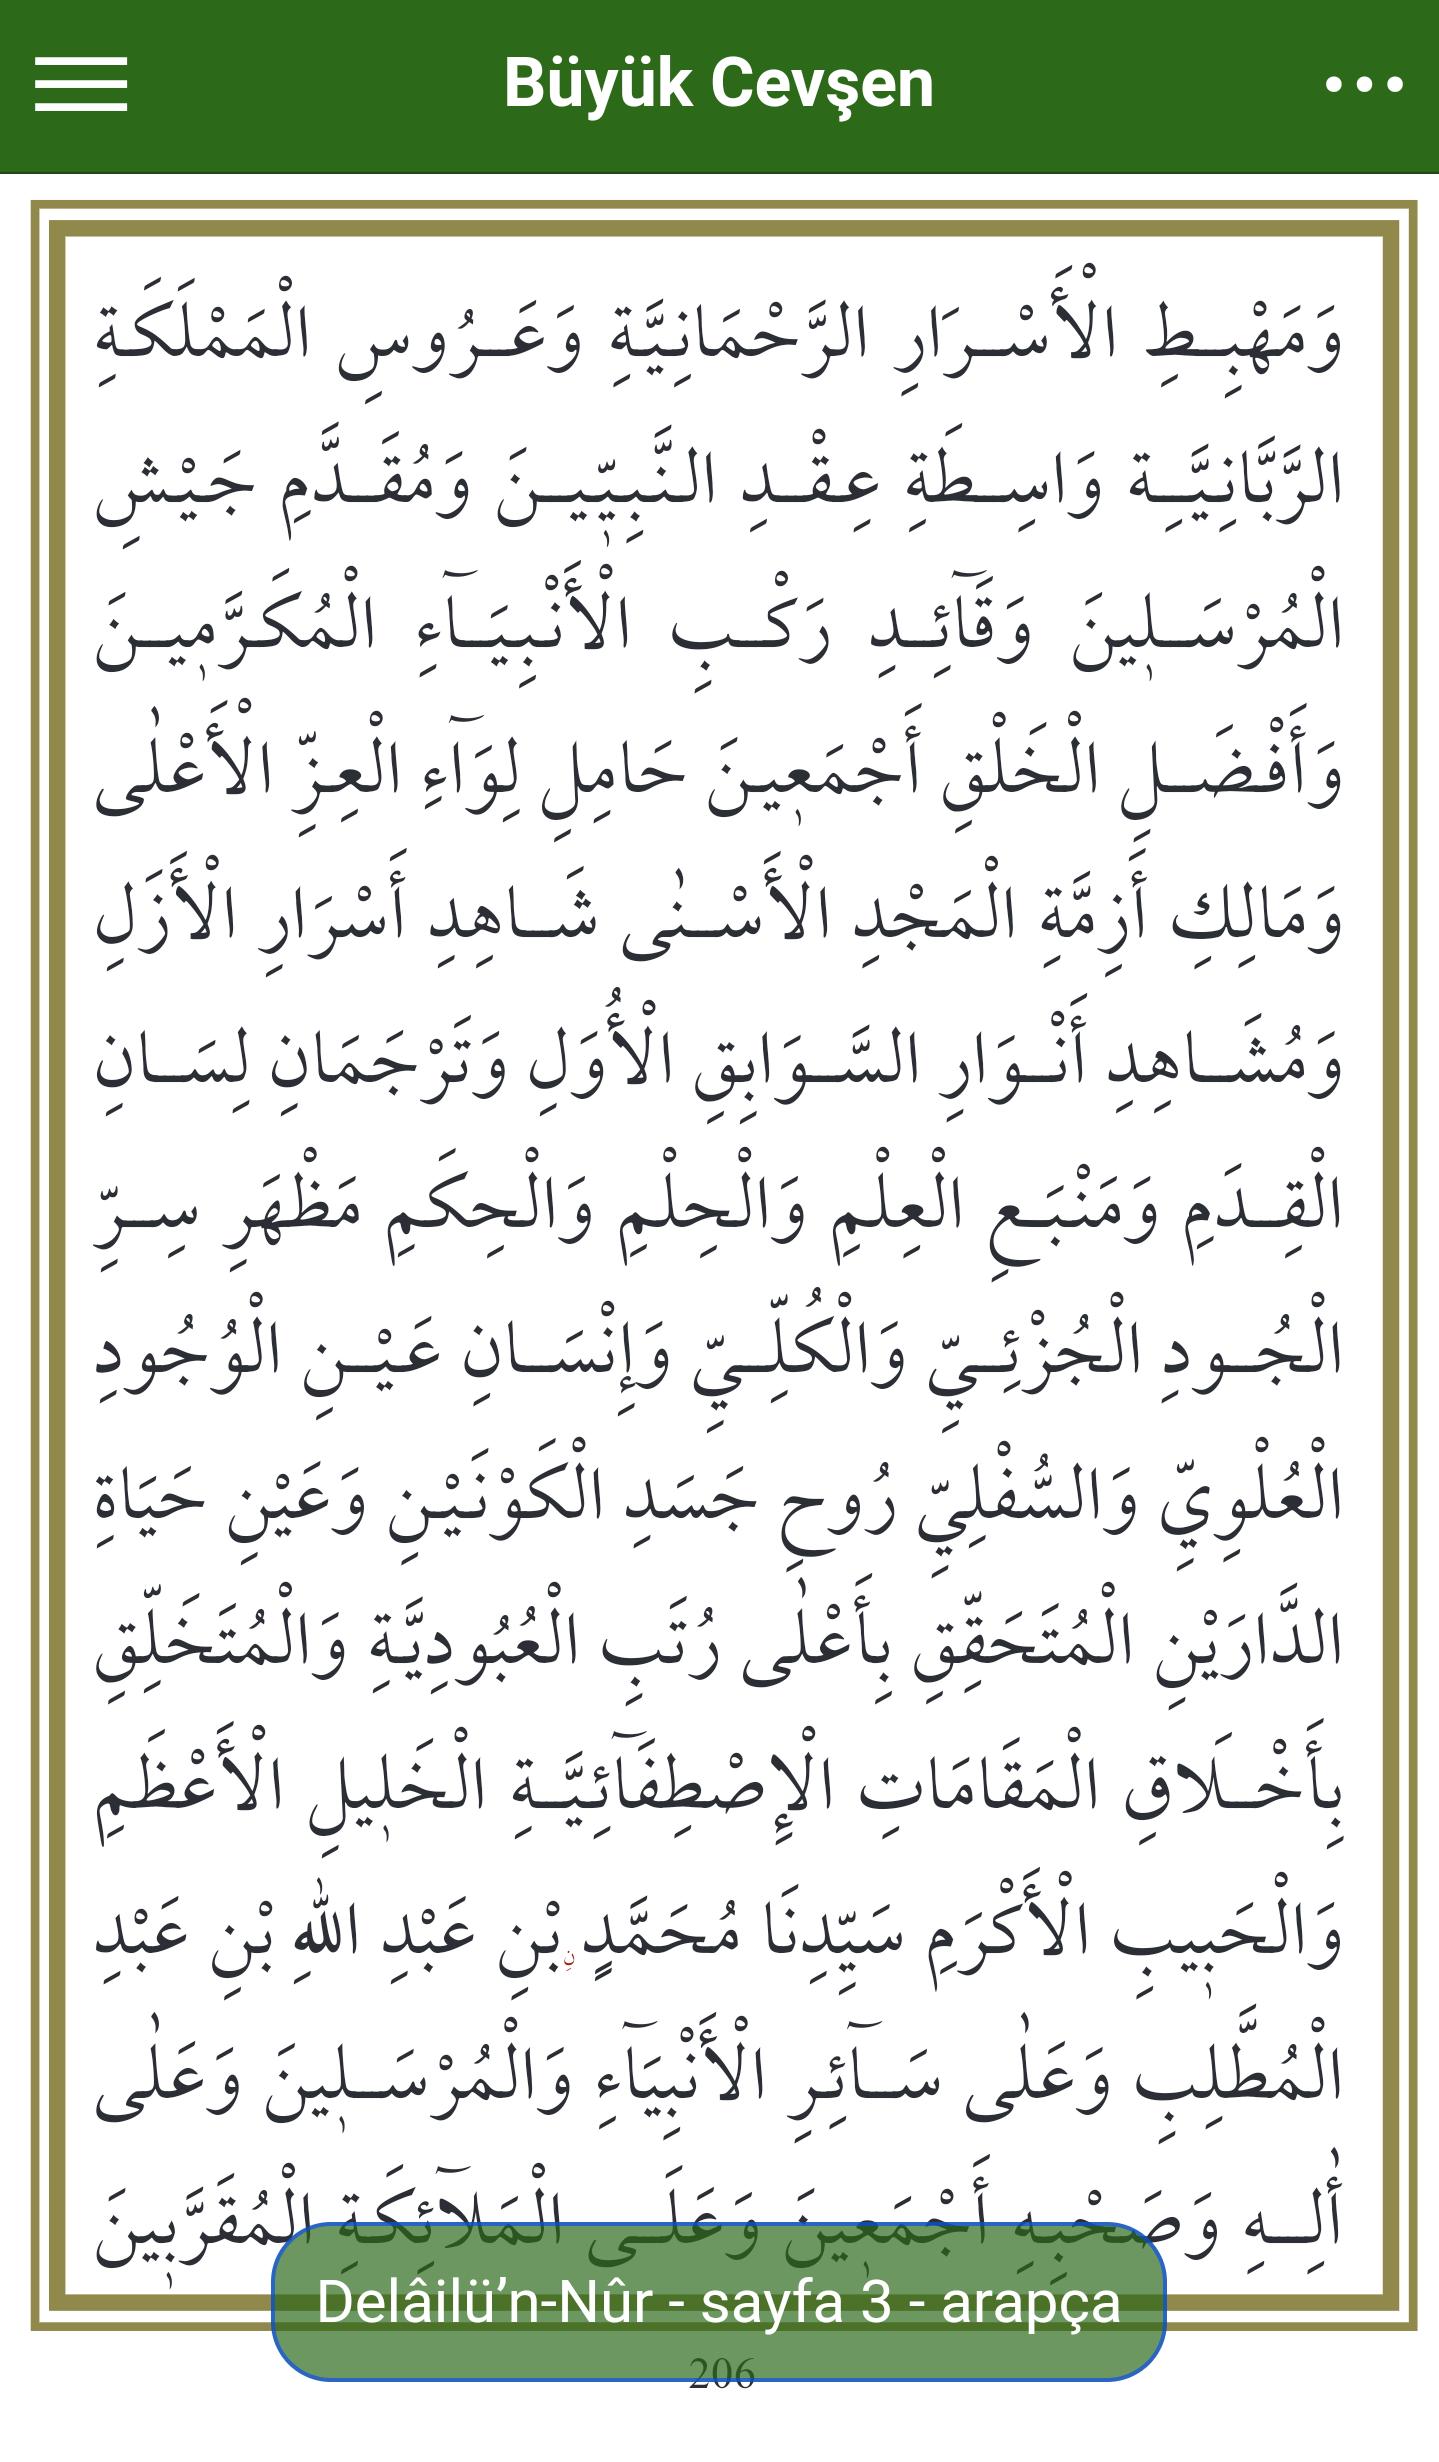 Büyük Cevşen
وَمَهْبِطِ الْأَسْرَارِ الرَّحْمَانِيَّةِ وَعَرُوسِ الْمَمْلَكَةِ
الرَّبَّانِيَّةِ وَاسِطَةِ عِقْدِ النَّبِيّ۪ينَ وَمُقَدَّمِ جَيْشِ
الْمُرْسَل۪ينَ وَقَآئِدِ رَكْبِ الْأَنْبِيَآءِ الْمُكَرَّم۪ينَ
وَأَفْضَلِ الْخَلْقِ أَجْمَع۪ينَ حَامِلِ لِوَآءِ الْعِزِّ الْأَعْلٰى
وَمَالِكِ أَزِمَّةِ الْمَجْدِ الْأَسْنٰى شَاهِدِ أَسْرَارِ الْأَزَلِ
وَمُشَاهِدِ أَنْوَارِ السَّوَابِقِ الْأُوَلِ وَتَرْجَمَانِ لِسَانِ
الْقِدَمِ وَمَنْبَعِ الْعِلْمِ وَالْحِلْمِ وَالْحِكَمِ مَظْهَرِ سِرِّ
الْجُودِ الْجُزْئِيِّ وَالْكُلِّيِّ وَإِنْسَانِ عَيْنِ الْوُجُودِ
الْعُلْوِيِّ وَالسُّفْلِيِّ رُوحِ جَسَدِ الْكَوْنَيْنِ وَعَيْنِ حَيَاةِ
الدَّارَيْنِ الْمُتَحَقِّقِ بِأَعْلٰى رُتَبِ الْعُبُودِيَّةِ وَالْمُتَخَلِّقِ
بِأَخْلَاقِ الْمَقَامَاتِ الْإِصْطِفَآئِيَّةِ الْخَل۪يلِ الْأَعْظَمِ
وَالْحَب۪يبِ الْأَكْرَمِ سَيِّدِنَا مُحَمَّدٍ نِ بْنِ عَبْدِ اللّٰهِ بْنِ عَبْدِ
الْمُطَّلِبِ وَعَلٰى سَآئِرِ الْأَنْبِيَآءِ وَالْمُرْسَل۪ينَ وَعَلٰى
أٰلِهِ وَصَحْبِهِ أَجْمَع۪ينَ وَعَلَى الْمَلآئِكَةِ الْمُقَرَّب۪ينَ
Delâilü’n-Nûr - sayfa 3 - arapça
206